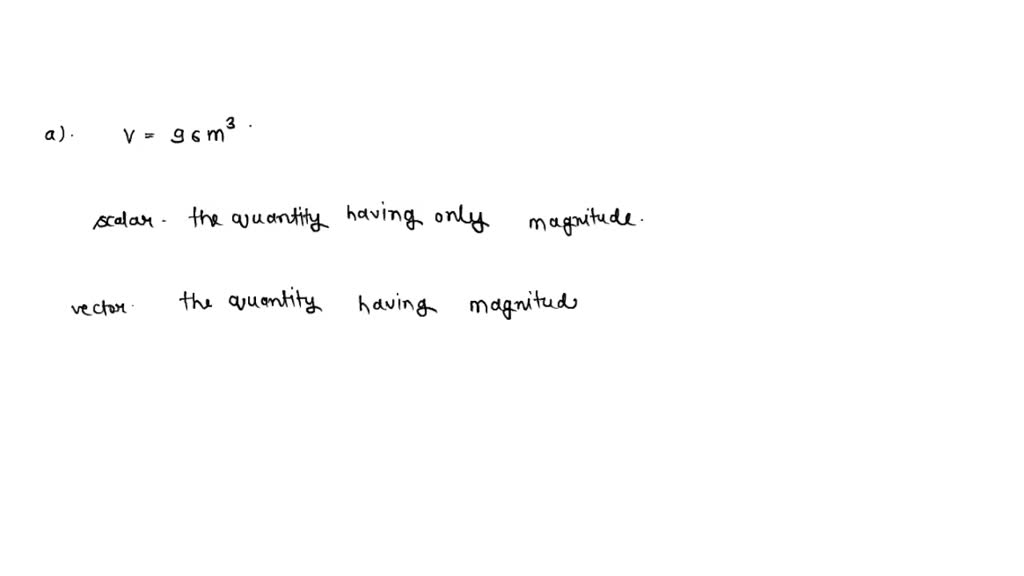 a). V = 96 m³.
scalar. the quantity having only magnitude.
vector. the quantity having magnitud